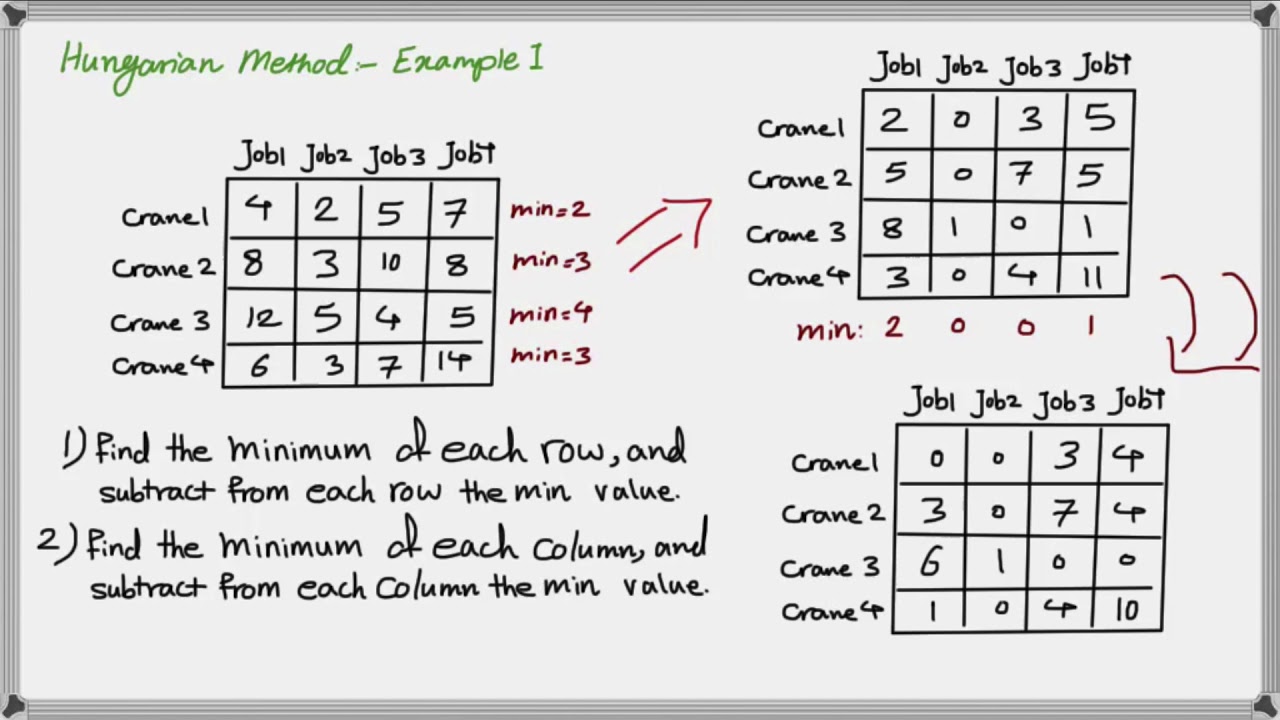 Hungarian Method:- Example 1
Job1 Job2 Job3 Job4
Crane1 4 2 5 7 min=2
Crane 2 8 3 10 8 min=3
Crane 3 12 5 4 5 min=4
Crane4 6 3 7 14 min=3
1) Find the minimum of each row, and
subtract from each row the min value.
2) Find the minimum of each column, and
subtract from each column the min value.
Job1 Job2 Job3 Job4
Crane1 2 0 3 5
Crane 2 5 0 7 5
Crane 3 8 1 0 1
Crane4 3 0 4 11
min: 2 0 0 1
Job1 Job2 Job3 Job4
Crane1 0 0 3 4
Crane 2 3 0 7 4
Crane 3 6 1 0 0
Crane4 1 0 4 10